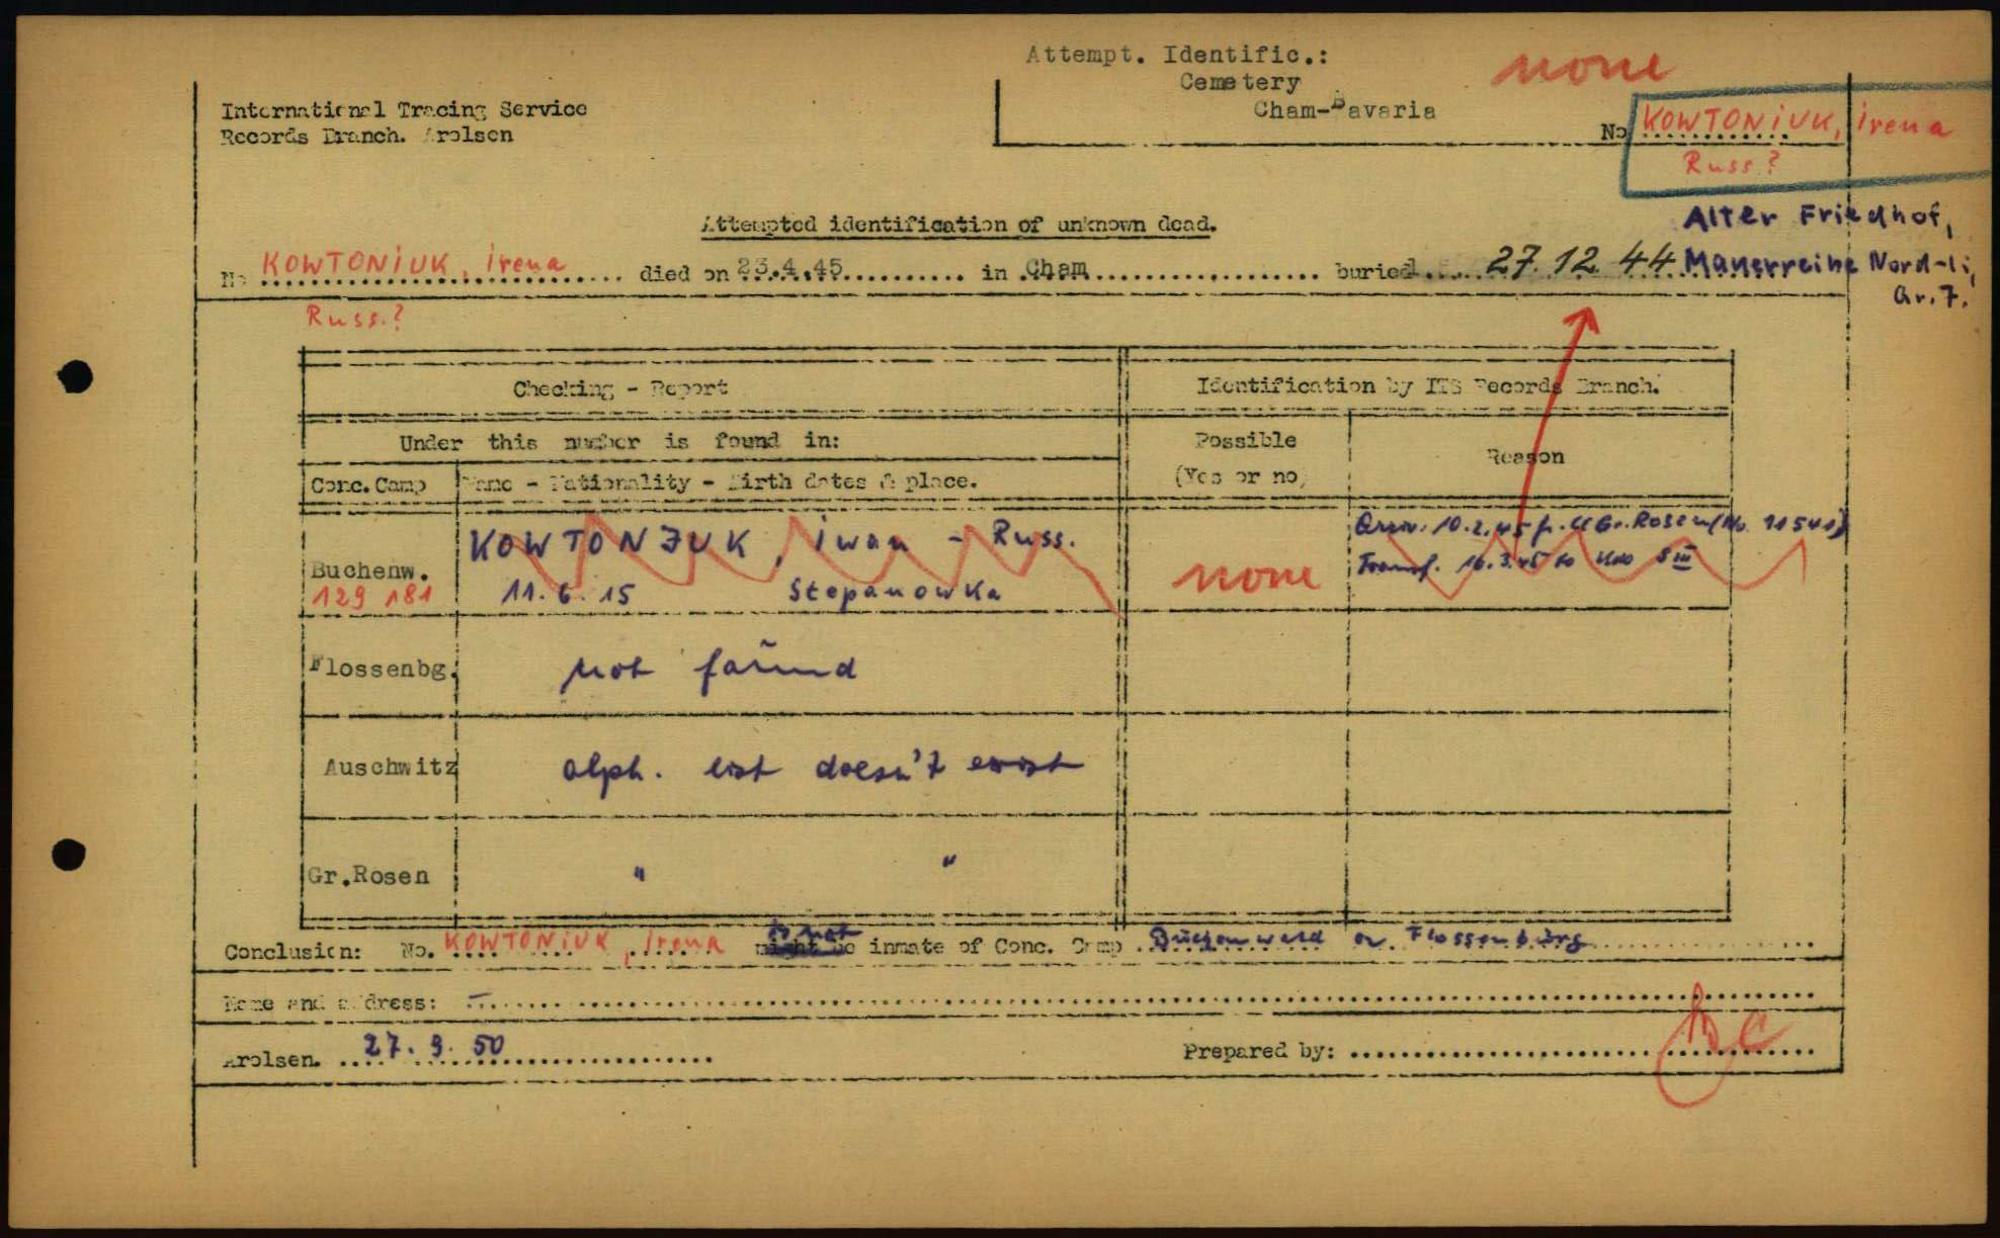 Attempt. Identific.:
none
Cemetery
Cham-Bavaria
International Tracing Service
Records Branch. Arolsen
No KOWTONIUK, Irena
Russ?
Attempted identification of unknown dead.
Alter Friedhof,
Mauerreihe Nord-li,
Gr. 7.
No KOWTONIUK, Irena died on 23.4.45 in Cham buried 27.12.44
Russ.?
Checking - Report
Identification by ITS Records Branch.
Under this number is found in:
Possible
(Yes or no)
Reason
Conc. Camp
Name - Nationality - Birth dates & place.
Buchenw.
129 181
KOWTONJUK, Iwan - Russ.
11.6.15 Stepanowka
none
Arriv. 10.2.45 f. CC Gr. Rosen (No. 11541)
Transf. 16.3.45 to Kdo S III
Flossenbg.
not found
Auschwitz
alph. list doesn't exist
Gr.Rosen
" "
is not
Conclusion: No. KOWTONIUK, Irena might be inmate of Conc. Camp Buchenwald or Flossenbürg
Name and address: -
Arolsen. 27. 9. 50
Prepared by: